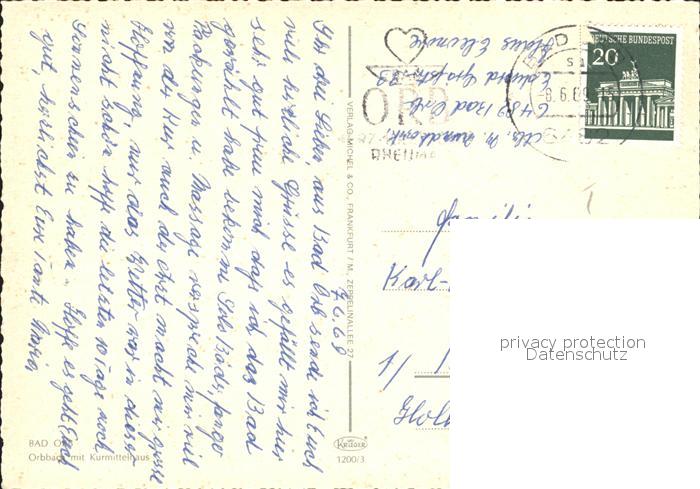 7.6.69
Ihr alle Lieben, aus Bad Orb sende ich Euch
viele herzliche Grüsse es gefällt mir hier
sehr gut freue mich daß ich das Bad
gewählt habe bekomme Solebäder, Fango
Packungen u. Massage verspreche mir viel
von der Kur auch der Arzt macht mir grosse
Hoffnung nur das Wetter war in dieser
nicht schön hoffe die letzten 10 Tage noch
Sonnenschein zu haben. Hoffe es geht Euch
gut, herzlichst Eure Tante Maria
BAD ORB
Orbbach mit Kurmittelhaus
VERLAG MICHEL & CO., FRANKFURT / M., ZEPPELINALLEE 27
KRÜGER
1200/3
Abs. M.
6482 Bad Orb
Haus
BAD
ORB
RHEUMA
8.6.69
6482
DEUTSCHE BUNDESPOST
20
Familie
Karl-
privacy protection
Datenschutz